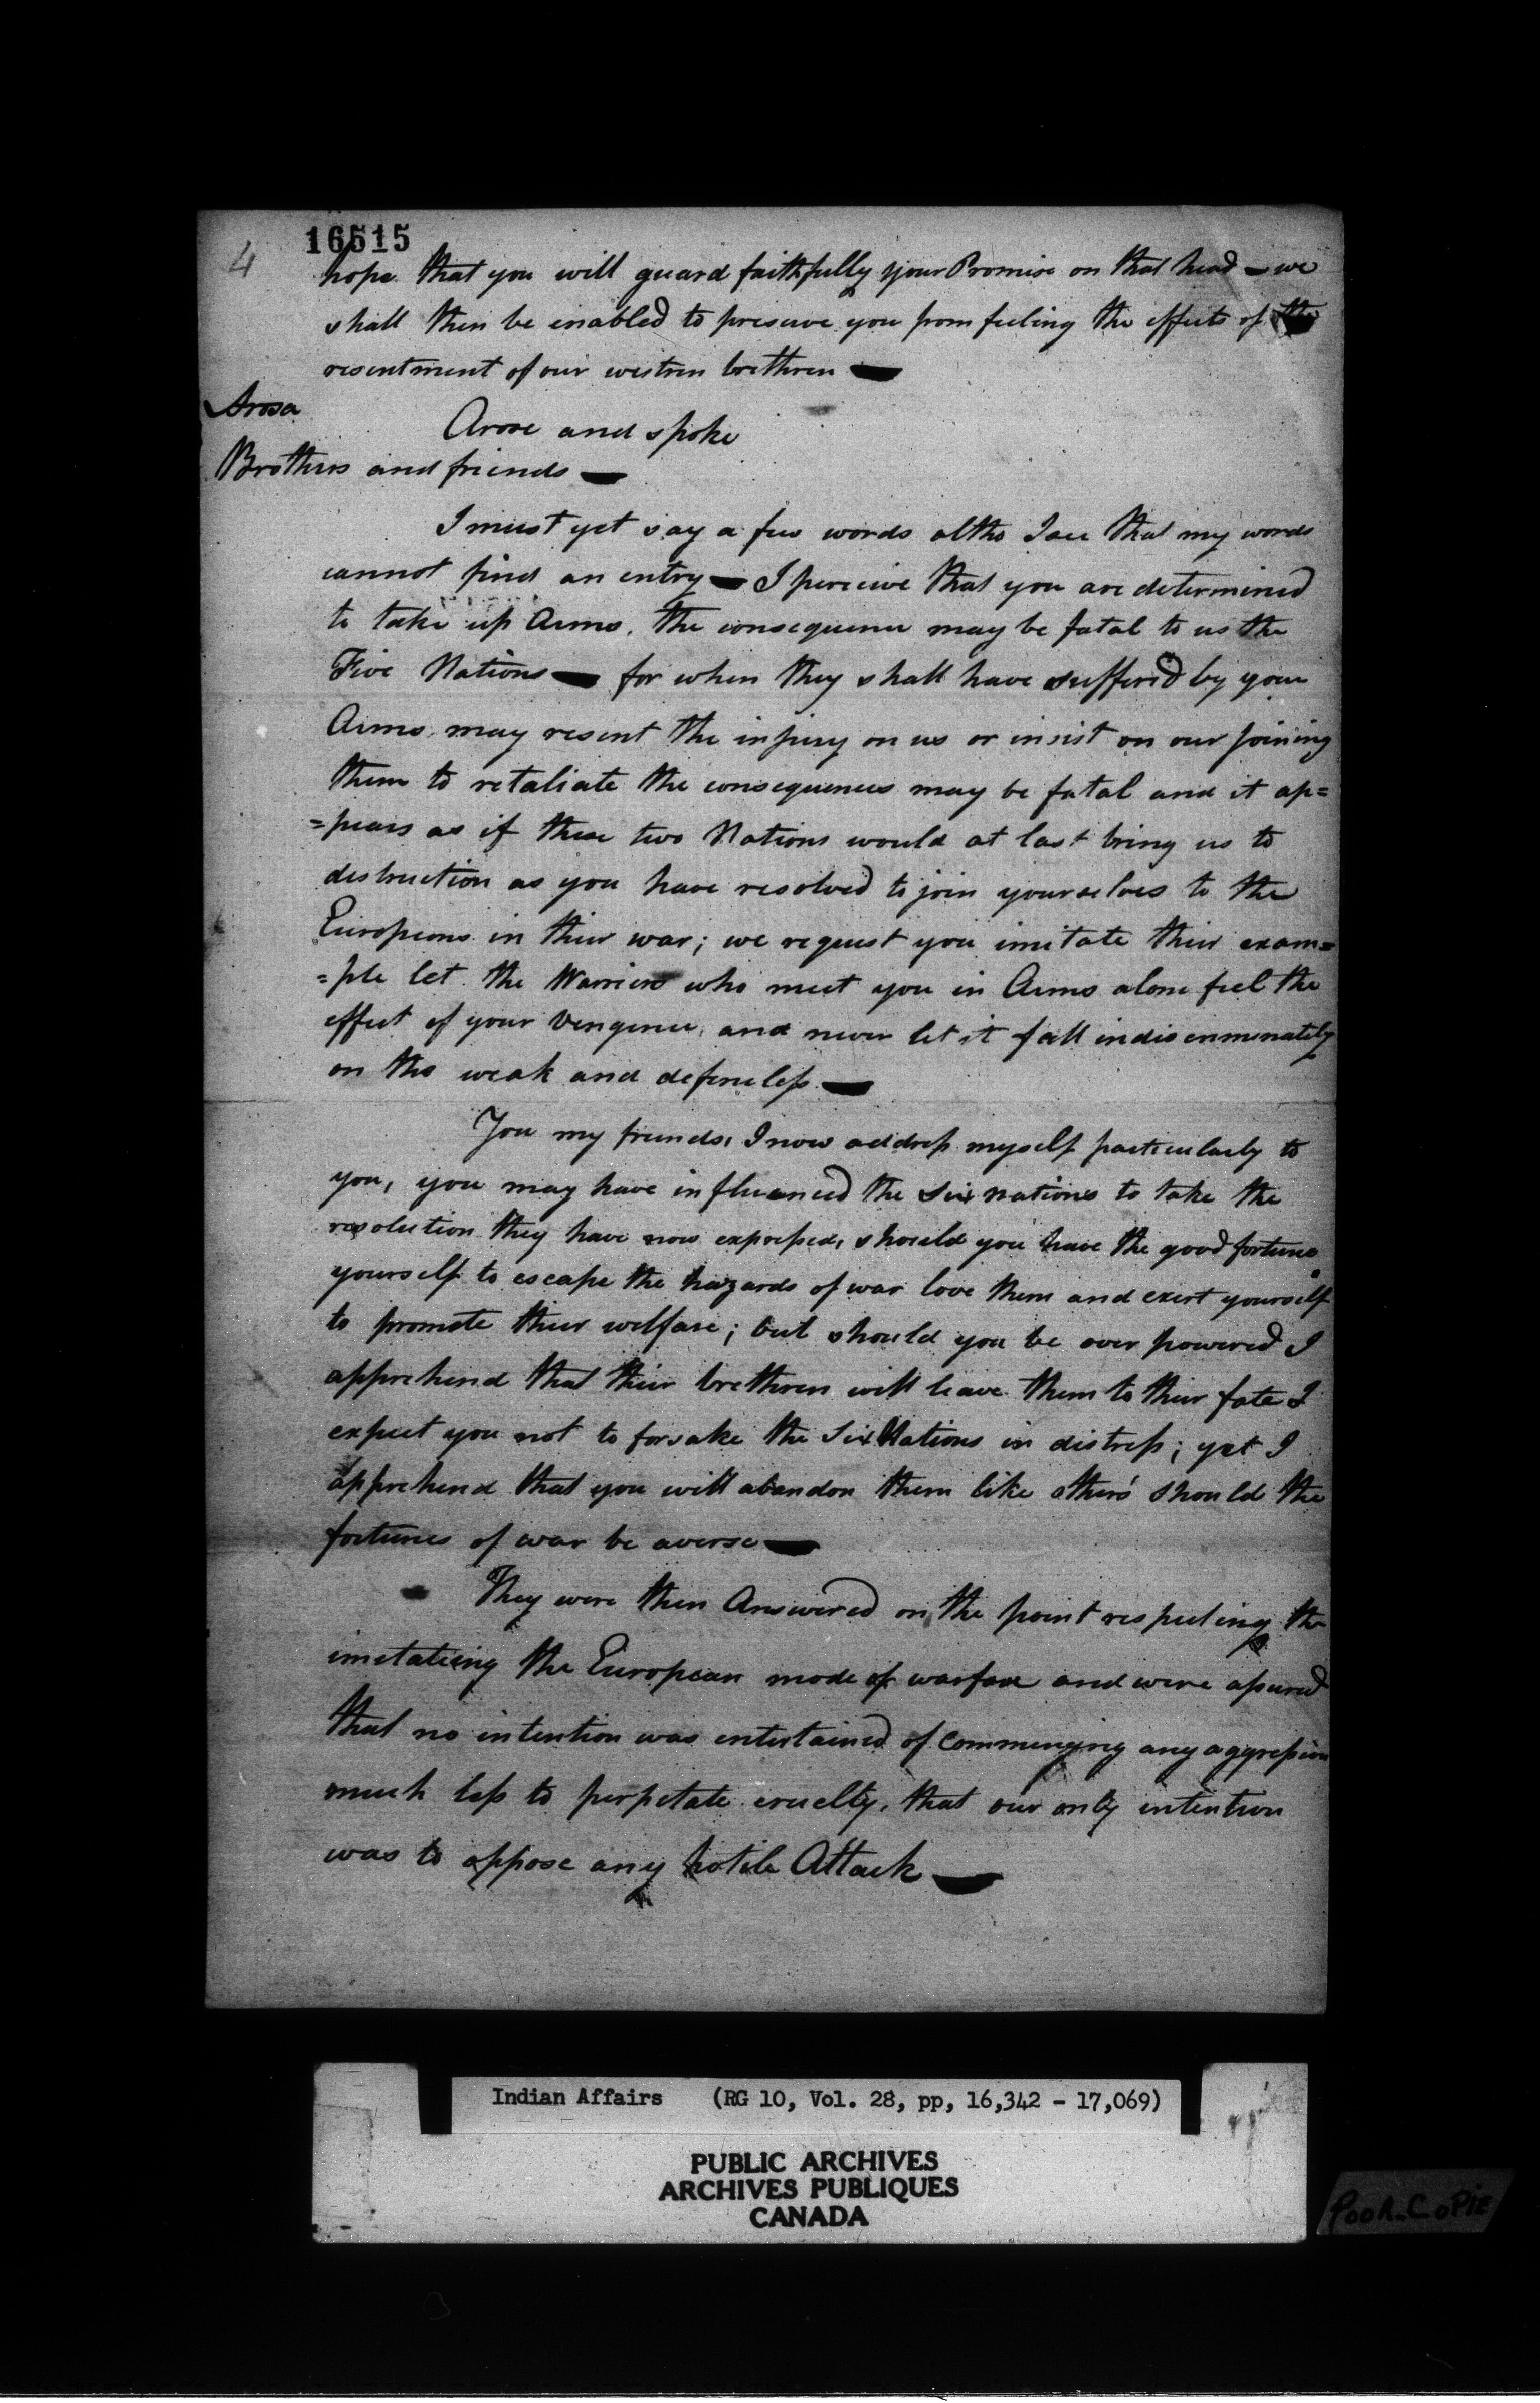 4
16515
hope that you will guard faithfully your Promise on that head — we
shall then be enabled to preserve you from feeling the effects of the
resentment of our westren brethren —
Arosa
Arose and spoke
Brothers and friends —
I must yet say a few words altho I see that my words
cannot find an entry — I perceive that you are determined
to take up Arms. the consequence may be fatal to us the
Five Nations — for when they shall have suffered by your
Arms may resent the injury on us or insist on our joining
them to retaliate the consequences may be fatal and it ap=
=pears as if these two Nations would at last bring us to
destruction as you have resolved to join yourselves to the
Europeans in their war; we request you imitate their exam=
=ple let the Warriors who meet you in Arms alone feel the
effect of your vengence, and never let it fall indiscriminately
on the weak and defenceless —
You my friends, I now address myself particularly to
you, you may have influenced the six nations to take the
resolution they have now expressed, should you have the good fortune
yourself to escape the hazards of war love them and exert yourself
to promote their welfare; but should you be over powered I
apprehend that their brethren will leave them to their fate I
expect you not to forsake the Six Nations in distress; yet I
apprehend that you will abandon them like others should the
fortunes of war be averse —
They were then Answered on the point respecting the
imitateing the European mode of warfare and were assured
that no intention was entertained of Commencing any aggression
much less to perpetate cruelty, that our only intention
was to oppose any hotile Attack —
Indian Affairs (RG 10, Vol. 28, pp, 16,342 - 17,069)
PUBLIC ARCHIVES
ARCHIVES PUBLIQUES
CANADA
POOR COPIE